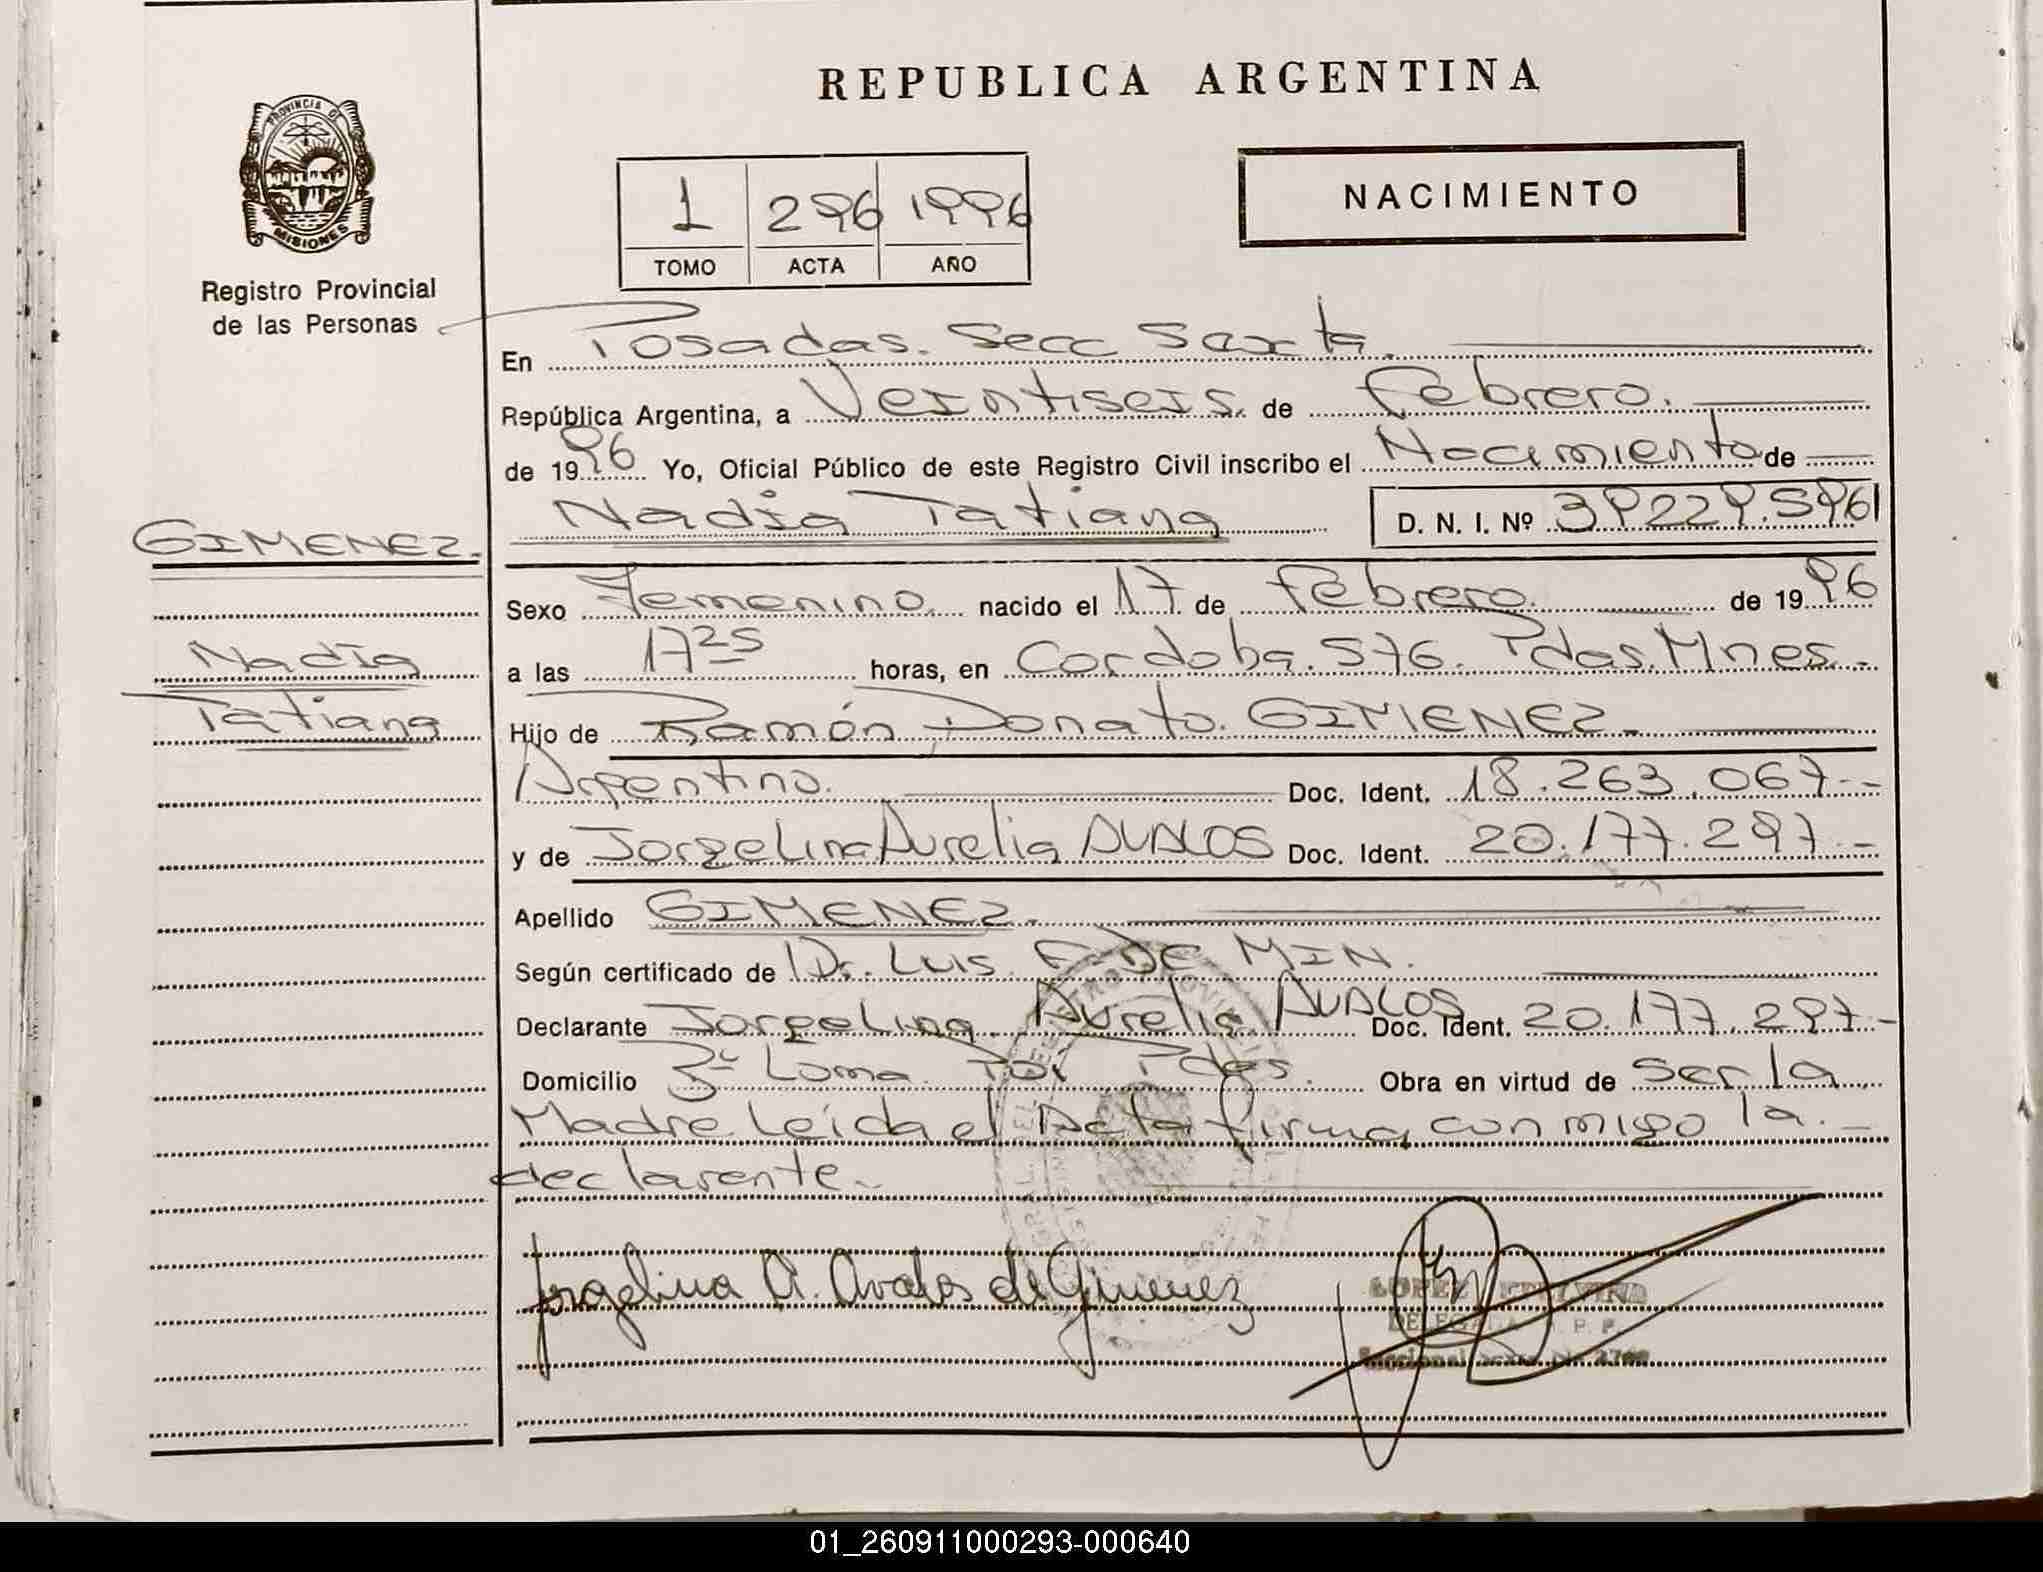 REPUBLICA ARGENTINA
PROVINCIA DE
MISIONES
Registro Provincial
de las Personas
1 296 1996
TOMO ACTA AÑO
NACIMIENTO
En Posadas. Secc Sexta
República Argentina, a Veintiseis. de Febrero.
de 1996 Yo, Oficial Público de este Registro Civil inscribo el Nacimiento de
Nadia Tatiana D. N. I. Nº 39229.596
GIMENEZ.
Nadia
Tatiana
Sexo Femenino. nacido el 17 de Febrero de 1996
a las 17 25 horas, en Cordoba. 576. Pdas. Mnes.
Hijo de Ramón Donato. GIMENEZ.
Argentino. Doc. Ident. 18.263.067.-
y de Jorgelina Aurelia AVALOS Doc. Ident. 20.177.297.-
Apellido GIMENEZ.
Según certificado de Dr. Luis F. DE MIN.
Declarante Jorgelina Aurelia AVALOS Doc. Ident. 20.177.297-
Domicilio Loma Pdas. Obra en virtud de ser la
Madre Leída el Acta firma conmigo la.
declarente.
Jorgelina A. Avalos de Gimenez
LOPEZ
01_260911000293-000640